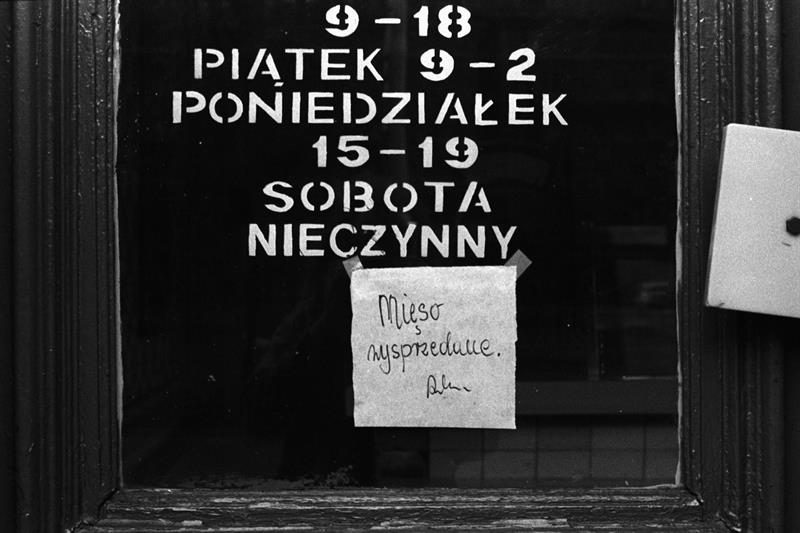 9-18
PIĄTEK 9-2
PONIEDZIAŁEK
15-19
SOBOTA
NIECZYNNY
Mięso
wysprzedane.